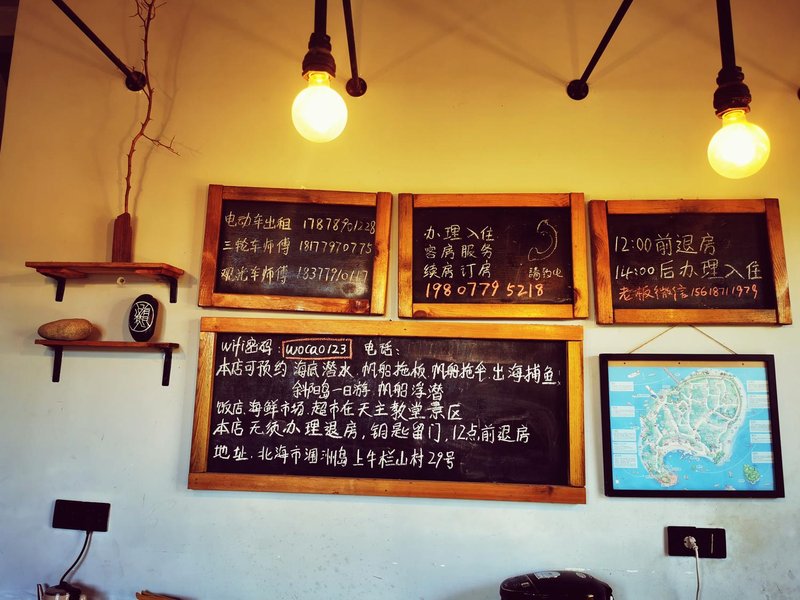 电动车出租 17878901228
三轮车师傅 18177970775
观光车师傅 18377910117
办理入住
客房服务
续房订房 請致电
19807795218
12:00前退房
14:00后办理入住
老板微信15618711979
wifi密码: woca0123 电话:
本店可预约 海底潜水 帆船拖板 帆船拖伞 出海捕鱼,
斜阳岛一日游 帆船浮潜
饭店.海鲜市场.超市在天主教堂景区
本店无须办理退房,钥匙留门,12点前退房
地址:北海市涠洲岛上牛栏山村29号